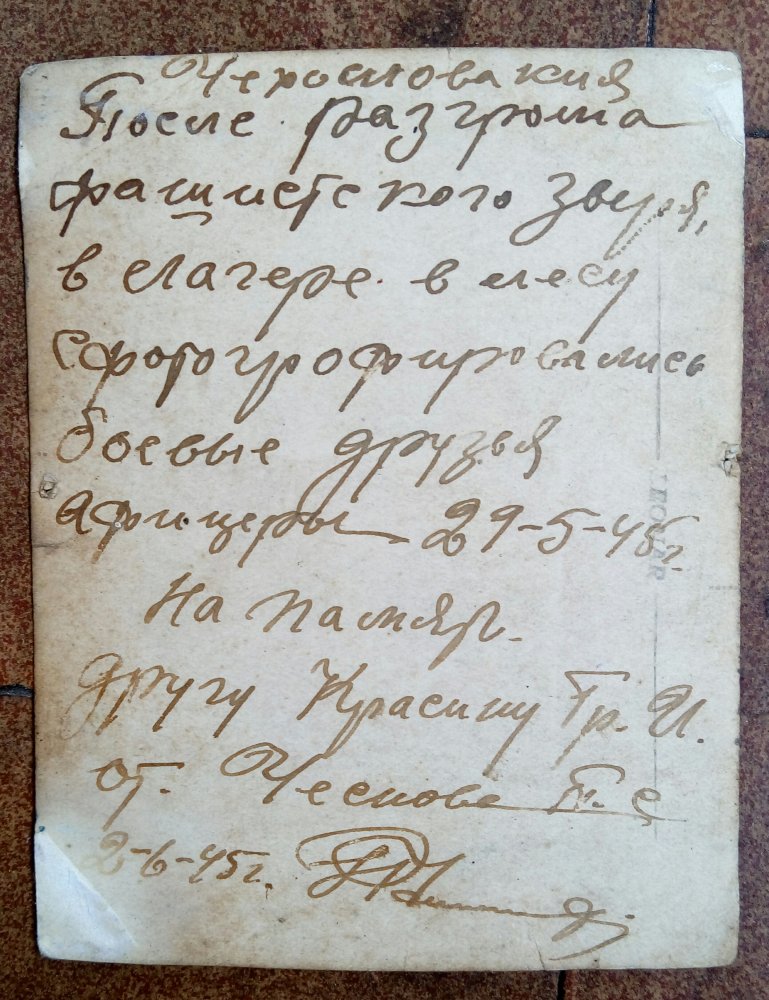 Чехословакия
После разгрома
фашистского зверя,
в лагере в лесу
сфотогрофировались
боевые друзья
афицеры 29-5-45г.
На память.
другу Красину Гр. И.
от. Чеснова П. С
2-6-45г.
LEONAR